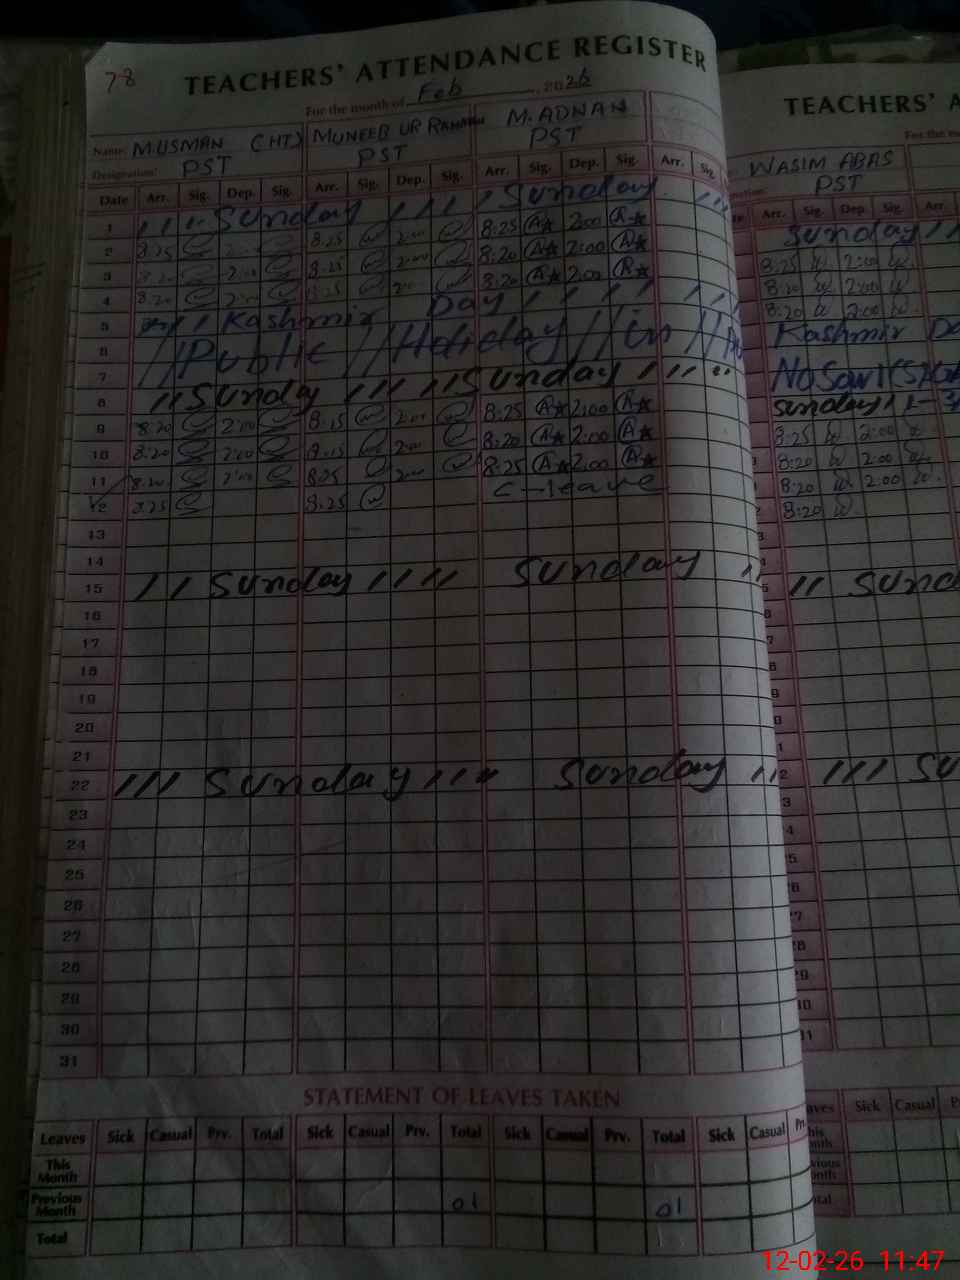 78
TEACHERS' ATTENDANCE REGISTER
For the month of Feb 2026
Name: M.USMAN (HT) MUNEEB UR RAHMAN M. ADNAN
Designation: PST PST PST
Date Arr. Sig. Dep. Sig. Arr. Sig. Dep. Sig. Arr. Sig. Dep. Sig. Arr. Sig.
1 Sunday Sunday
2 8:25 2:00 8:25 2:00 8:25 2:00
3 8:20 2:00 8:25 2:00 8:20 2:00
4 8:20 2:00 8:25 2:00 8:20 2:00
5 Kashmir Day
6 Public Holiday in
7
8 Sunday Sunday
9 8:20 2:00 8:15 2:00 8:25 2:00
10 8:20 2:00 8:15 2:00 8:20 2:00
11 8:20 2:00 8:25 2:00 8:25 2:00
12 8:25 8:25 C-leave
13
14
15 Sunday Sunday
16
17
18
19
20
21
22 Sunday Sunday
23
24
25
26
27
28
29
30
31
STATEMENT OF LEAVES TAKEN
Leaves Sick Casual Prv. Total Sick Casual Prv. Total Sick Casual Prv. Total Sick Casual Prv.
This Month
Previous Month 01 01
Total
TEACHERS' A
For the m
WASIM ABAS
PST
Arr. Sig. Dep. Sig. Arr.
Sunday
8:25 2:00
8:20 2:00
8:20 2:00
Kashmir Da
Sunday
8:25 2:00
8:20 2:00
8:20 2:00
8:20
Sund
Su
Sick Casual
12-02-26 11:47